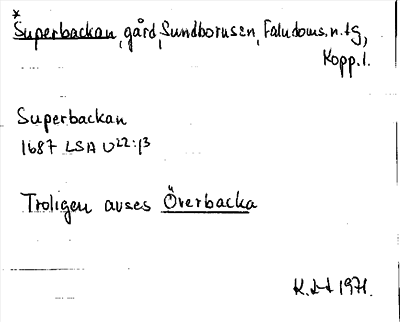 *
Superbackan, gård, Sundbornssn, Faludoms.n.tg,
Kopp.l.
Superbackan
1687 LSA U22:β3
Troligen avses Överbacka
1971.